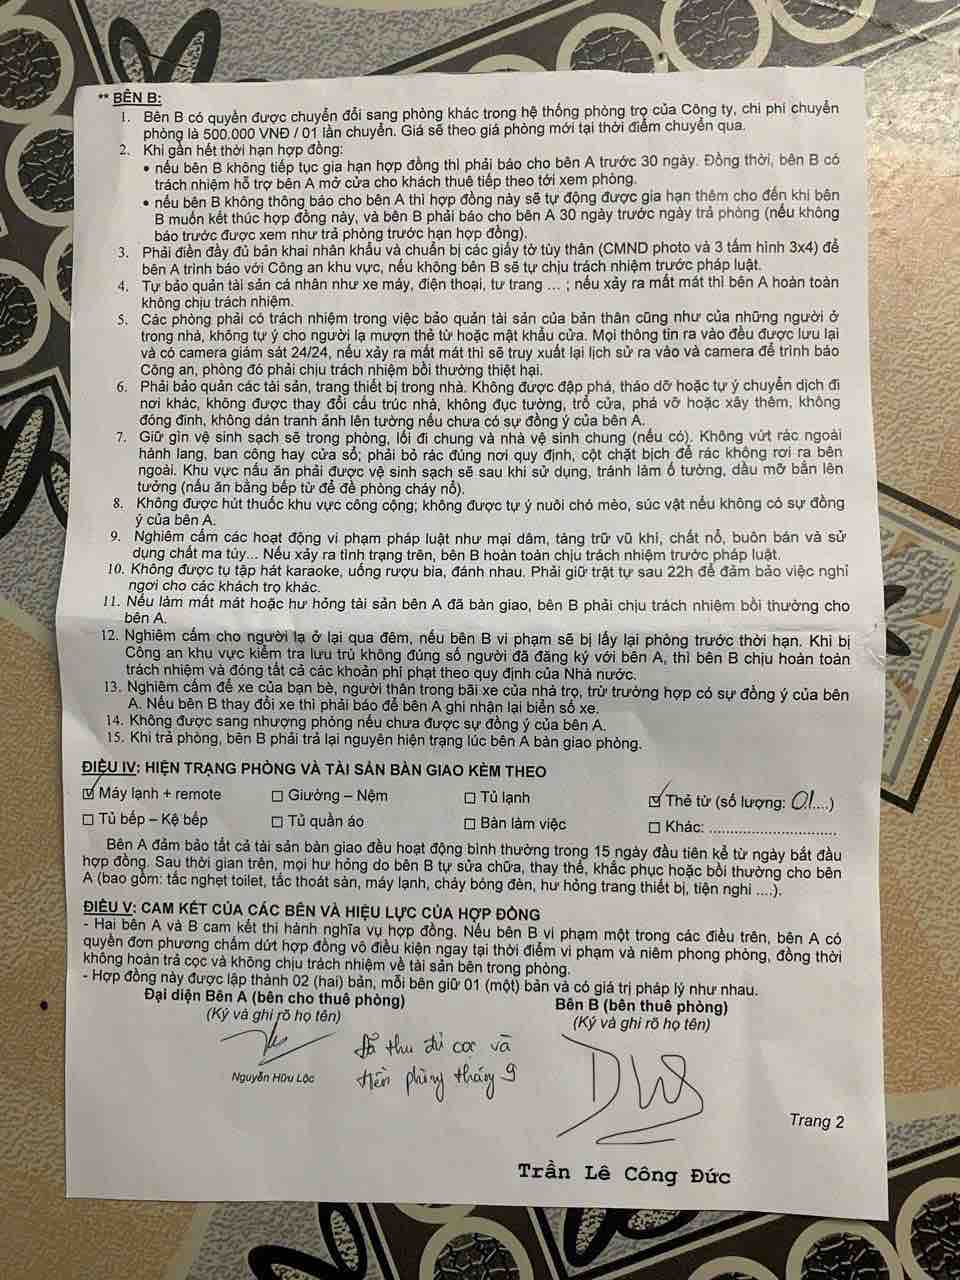 ** BÊN B:
1. Bên B có quyền được chuyển đổi sang phòng khác trong hệ thống phòng trọ của Công ty, chi phí chuyển
phòng là 500.000 VNĐ / 01 lần chuyển. Giá sẽ theo giá phòng mới tại thời điểm chuyển qua.
2. Khi gần hết thời hạn hợp đồng:
• nếu bên B không tiếp tục gia hạn hợp đồng thì phải báo cho bên A trước 30 ngày. Đồng thời, bên B có
trách nhiệm hỗ trợ bên A mở cửa cho khách thuê tiếp theo tới xem phòng.
• nếu bên B không thông báo cho bên A thì hợp đồng này sẽ tự động được gia hạn thêm cho đến khi bên
B muốn kết thúc hợp đồng này, và bên B phải báo cho bên A 30 ngày trước ngày trả phòng (nếu không
báo trước được xem như trả phòng trước hạn hợp đồng).
3. Phải điền đầy đủ bản khai nhân khẩu và chuẩn bị các giấy tờ tùy thân (CMND photo và 3 tấm hình 3x4) để
bên A trình báo với Công an khu vực, nếu không bên B sẽ tự chịu trách nhiệm trước pháp luật.
4. Tự bảo quản tài sản cá nhân như xe máy, điện thoại, tư trang ... ; nếu xảy ra mất mát thì bên A hoàn toàn
không chịu trách nhiệm.
5. Các phòng phải có trách nhiệm trong việc bảo quản tài sản của bản thân cũng như của những người ở
trong nhà, không tự ý cho người lạ mượn thẻ từ hoặc mật khẩu cửa. Mọi thông tin ra vào đều được lưu lại
và có camera giám sát 24/24, nếu xảy ra mất mát thì sẽ truy xuất lại lịch sử ra vào và camera để trình báo
Công an, phòng đó phải chịu trách nhiệm bồi thường thiệt hại.
6. Phải bảo quản các tài sản, trang thiết bị trong nhà. Không được đập phá, tháo dỡ hoặc tự ý chuyển dịch đi
nơi khác, không được thay đổi cấu trúc nhà, không đục tường, trổ cửa, phá vỡ hoặc xây thêm, không
đóng đinh, không dán tranh ảnh lên tường nếu chưa có sự đồng ý của bên A.
7. Giữ gìn vệ sinh sạch sẽ trong phòng, lối đi chung và nhà vệ sinh chung (nếu có). Không vứt rác ngoài
hành lang, ban công hay cửa sổ; phải bỏ rác đúng nơi quy định, cột chặt bịch để rác không rơi ra bên
ngoài. Khu vực nấu ăn phải được vệ sinh sạch sẽ sau khi sử dụng, tránh làm ố tường, dầu mỡ bắn lên
tường (nấu ăn bằng bếp từ để đề phòng cháy nổ).
8. Không được hút thuốc khu vực công cộng; không được tự ý nuôi chó mèo, súc vật nếu không có sự đồng
ý của bên A.
9. Nghiêm cấm các hoạt động vi phạm pháp luật như mại dâm, tàng trữ vũ khí, chất nổ, buôn bán và sử
dụng chất ma túy... Nếu xảy ra tình trạng trên, bên B hoàn toàn chịu trách nhiệm trước pháp luật.
10. Không được tụ tập hát karaoke, uống rượu bia, đánh nhau. Phải giữ trật tự sau 22h để đảm bảo việc nghỉ
ngơi cho các khách trọ khác.
11. Nếu làm mất mát hoặc hư hỏng tài sản bên A đã bàn giao, bên B phải chịu trách nhiệm bồi thường cho
bên A.
12. Nghiêm cấm cho người lạ ở lại qua đêm, nếu bên B vi phạm sẽ bị lấy lại phòng trước thời hạn. Khi bị
Công an khu vực kiểm tra lưu trú không đúng số người đã đăng ký với bên A, thì bên B chịu hoàn toàn
trách nhiệm và đóng tất cả các khoản phí phạt theo quy định của Nhà nước.
13. Nghiêm cấm để xe của bạn bè, người thân trong bãi xe của nhà trọ, trừ trường hợp có sự đồng ý của bên
A. Nếu bên B thay đổi xe thì phải báo để bên A ghi nhận lại biển số xe.
14. Không được sang nhượng phòng nếu chưa được sự đồng ý của bên A.
15. Khi trả phòng, bên B phải trả lại nguyên hiện trạng lúc bên A bàn giao phòng.
ĐIỀU IV: HIỆN TRẠNG PHÒNG VÀ TÀI SẢN BÀN GIAO KÈM THEO
☑ Máy lạnh + remote ☐ Giường – Nệm ☐ Tủ lạnh ☑ Thẻ từ (số lượng: 01....)
☐ Tủ bếp – Kệ bếp ☐ Tủ quần áo ☐ Bàn làm việc ☐ Khác: ..............................
Bên A đảm bảo tất cả tài sản bàn giao đều hoạt động bình thường trong 15 ngày đầu tiên kể từ ngày bắt đầu
hợp đồng. Sau thời gian trên, mọi hư hỏng do bên B tự sửa chữa, thay thế, khắc phục hoặc bồi thường cho bên
A (bao gồm: tắc nghẹt toilet, tắc thoát sàn, máy lạnh, cháy bóng đèn, hư hỏng trang thiết bị, tiện nghi ....).
ĐIỀU V: CAM KẾT CỦA CÁC BÊN VÀ HIỆU LỰC CỦA HỢP ĐỒNG
- Hai bên A và B cam kết thi hành nghĩa vụ hợp đồng. Nếu bên B vi phạm một trong các điều trên, bên A có
quyền đơn phương chấm dứt hợp đồng vô điều kiện ngay tại thời điểm vi phạm và niêm phong phòng, đồng thời
không hoàn trả cọc và không chịu trách nhiệm về tài sản bên trong phòng.
- Hợp đồng này được lập thành 02 (hai) bản, mỗi bên giữ 01 (một) bản và có giá trị pháp lý như nhau.
Đại diện Bên A (bên cho thuê phòng) Bên B (bên thuê phòng)
(Ký và ghi rõ họ tên) (Ký và ghi rõ họ tên)
Đã thu đủ cọc và
tiền phòng tháng 9
Nguyễn Hữu Lộc
Trang 2
Trần Lê Công Đức